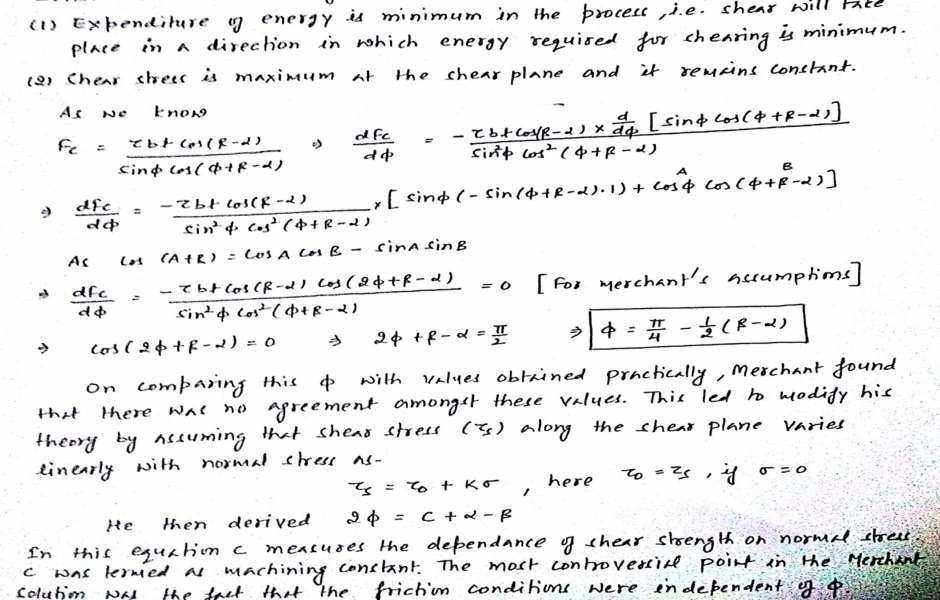 (1) Expenditure of energy is minimum in the process, i.e. shear will take
place in a direction in which energy required for shearing is minimum.
(2) Shear stress is maximum at the shear plane and it remains constant.
As we know
Fc = τbt cos(β-α) / sinφ cos(φ+β-α) ⇒ dFc/dφ = -τbt cos(β-α) × d/dφ [sinφ cos(φ+β-α)] / sin²φ cos²(φ+β-α)
A B
⇒ dFc/dφ = -τbt cos(β-α) / sin²φ cos²(φ+β-α) × [sinφ(-sin(φ+β-α)·1) + cosφ cos(φ+β-α)]
As cos (A+B) = cosA cosB - sinA sinB
⇒ dFc/dφ = -τbt cos(β-α) cos(2φ+β-α) / sin²φ cos²(φ+β-α) = 0 [For Merchant's assumptions]
⇒ cos(2φ+β-α) = 0 ⇒ 2φ+β-α = π/2 ⇒ φ = π/4 - 1/2 (β-α)
On comparing this φ with values obtained practically, Merchant found
that there was no agreement amongst these values. This led to modify his
theory by assuming that shear stress (τs) along the shear plane varies
linearly with normal stress as-
τs = τ0 + Kσ , here τ0 = τs , if σ = 0
He then derived 2φ = C + α - β
In this equation C measures the dependance of shear strength on normal stress.
C was termed as machining constant. The most controversial point in the Merchant
solution was the fact that the friction conditions were independent of φ.